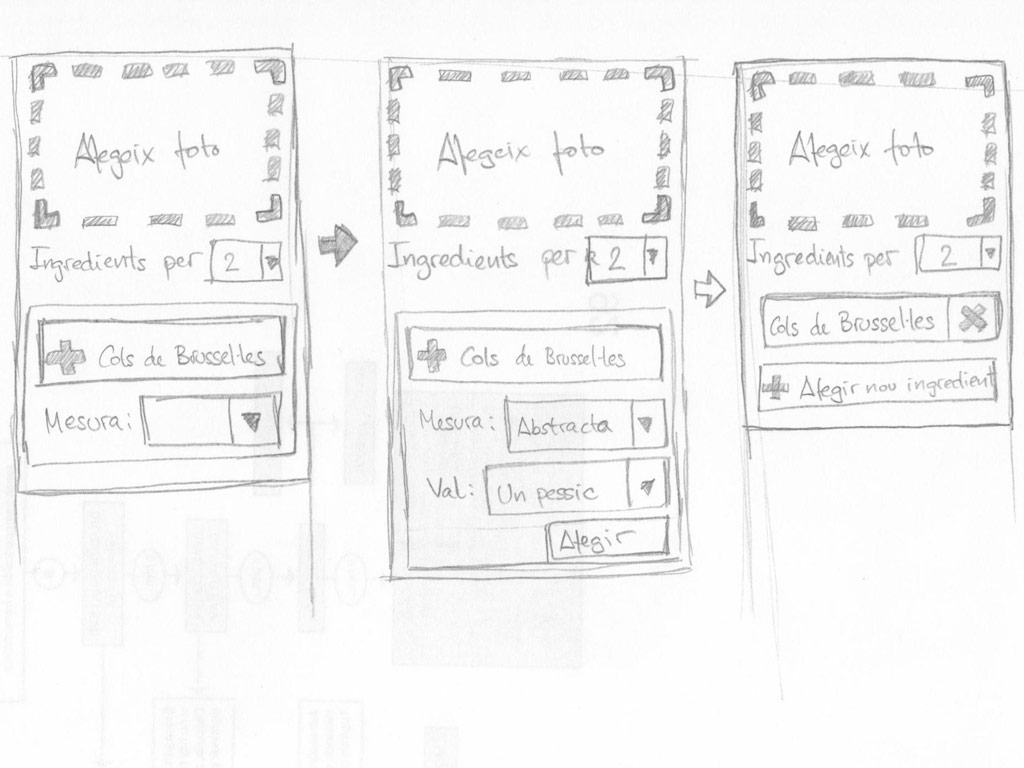 Afegeix foto
Ingredients per 2
Cols de Brussel·les
Mesura:
Afegeix foto
Ingredients per 2
Cols de Brussel·les
Mesura: Abstracta
Val: Un pessic
Afegir
Afegeix foto
Ingredients per 2
Cols de Brussel·les
Afegir nou ingredient